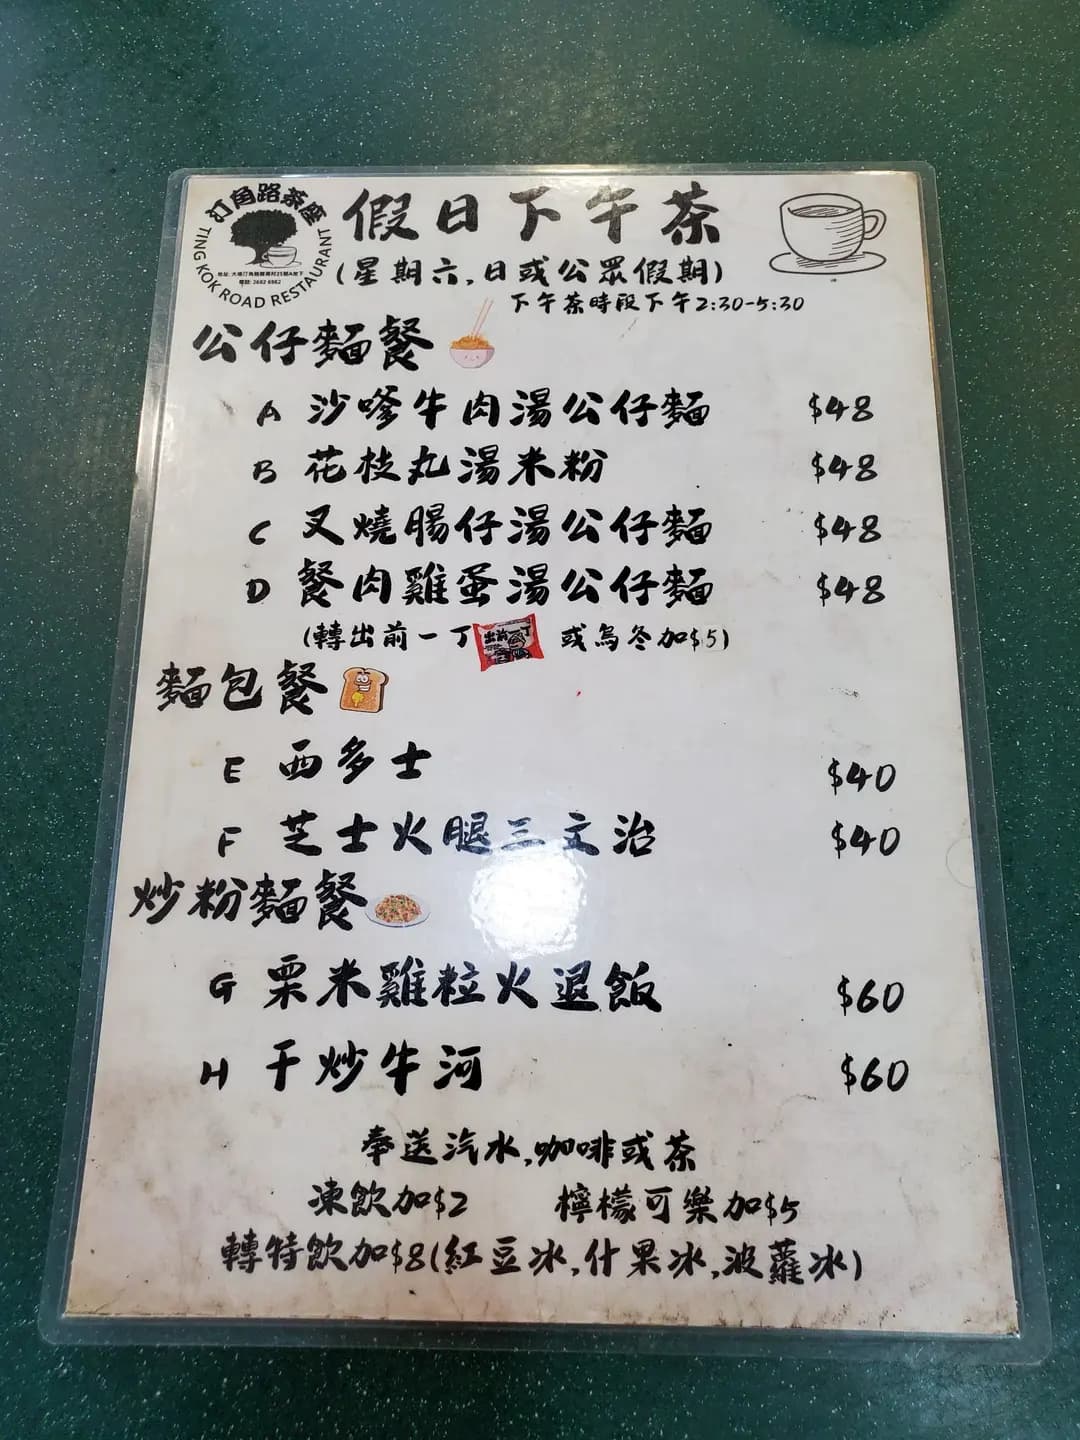 汀角路茶座
TING KOK ROAD RESTAURANT
電話: 2662 6982
假日下午茶
(星期六,日或公眾假期)
下午茶時段下午2:30-5:30
公仔麵餐
A 沙嗲牛肉湯公仔麵 $48
B 花枝丸湯米粉 $48
C 叉燒腸仔湯公仔麵 $48
D 餐肉雞蛋湯公仔麵 $48
(轉出前一丁 或烏冬加$5)
出前一丁
麵包餐
E 西多士 $40
F 芝士火腿三文治 $40
炒粉麵餐
G 栗米雞粒火退飯 $60
H 干炒牛河 $60
奉送汽水,咖啡或茶
凍飲加$2 檸檬可樂加$5
轉特飲加$8(紅豆冰,什果冰,波蘿冰)